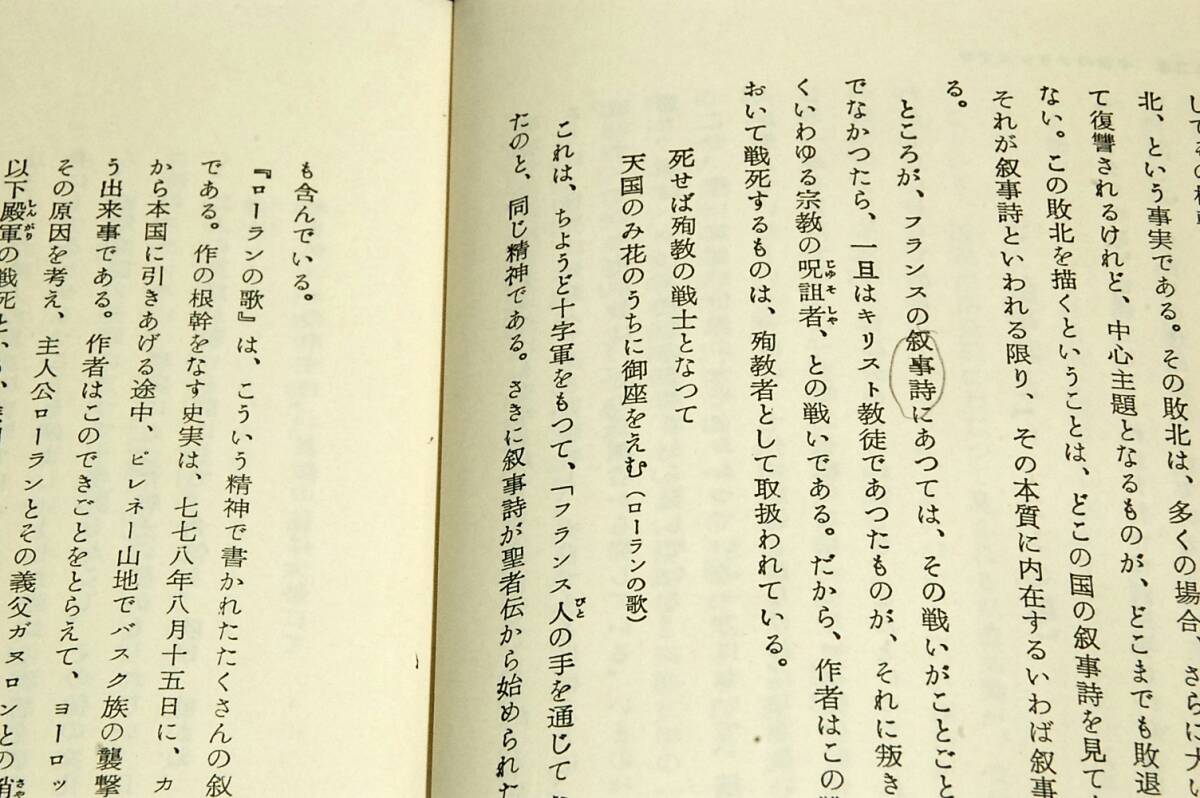 北、という事実である。その敗北は、多くの場合、さらに大い
て復讐されるけれど、中心主題となるものが、どこまでも敗退
ない。この敗北を描くということは、どこの国の叙事詩を見ても
それが叙事詩といわれる限り、その本質に内在するいわば叙事
る。
ところが、フランスの叙事詩にあつては、その戦いがことごと
でなかつたら、一旦はキリスト教徒であつたものが、それに叛き
くいわゆる宗教の呪詛者、との戦いである。だから、作者はこの
じゆそしや
おいて戦死するものは、殉教者として取扱われている。
死せば殉教の戦士となつて
天国のみ花のうちに御座をえむ（ローランの歌）
これは、ちようど十字軍をもつて、「フランス人の手を通じて
びと
たのと、同じ精神である。さきに叙事詩が聖者伝から始められた
も含んでいる。
『ローランの歌』は、こういう精神で書かれたたくさんの叙
である。作の根幹をなす史実は、七七八年八月十五日に、カ
から本国に引きあげる途中、ピレネー山地でバスク族の襲撃
う出来事である。作者はこのできごとをとらえて、ヨーロッ
その原因を考え、主人公ローランとその義父ガヌロンとの
以下殿軍の戦死と
しんがり